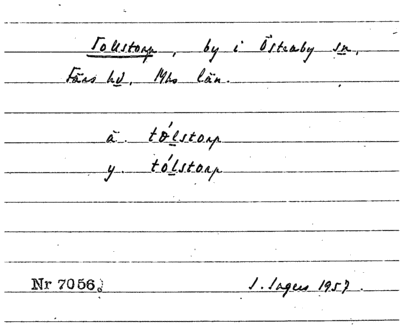 Tollstorp, by i Östraby sn,
Färs hd, Mhs län.
ä. tólstorp
y. tólstorp
Nr 7056. I. Ingers 1957.